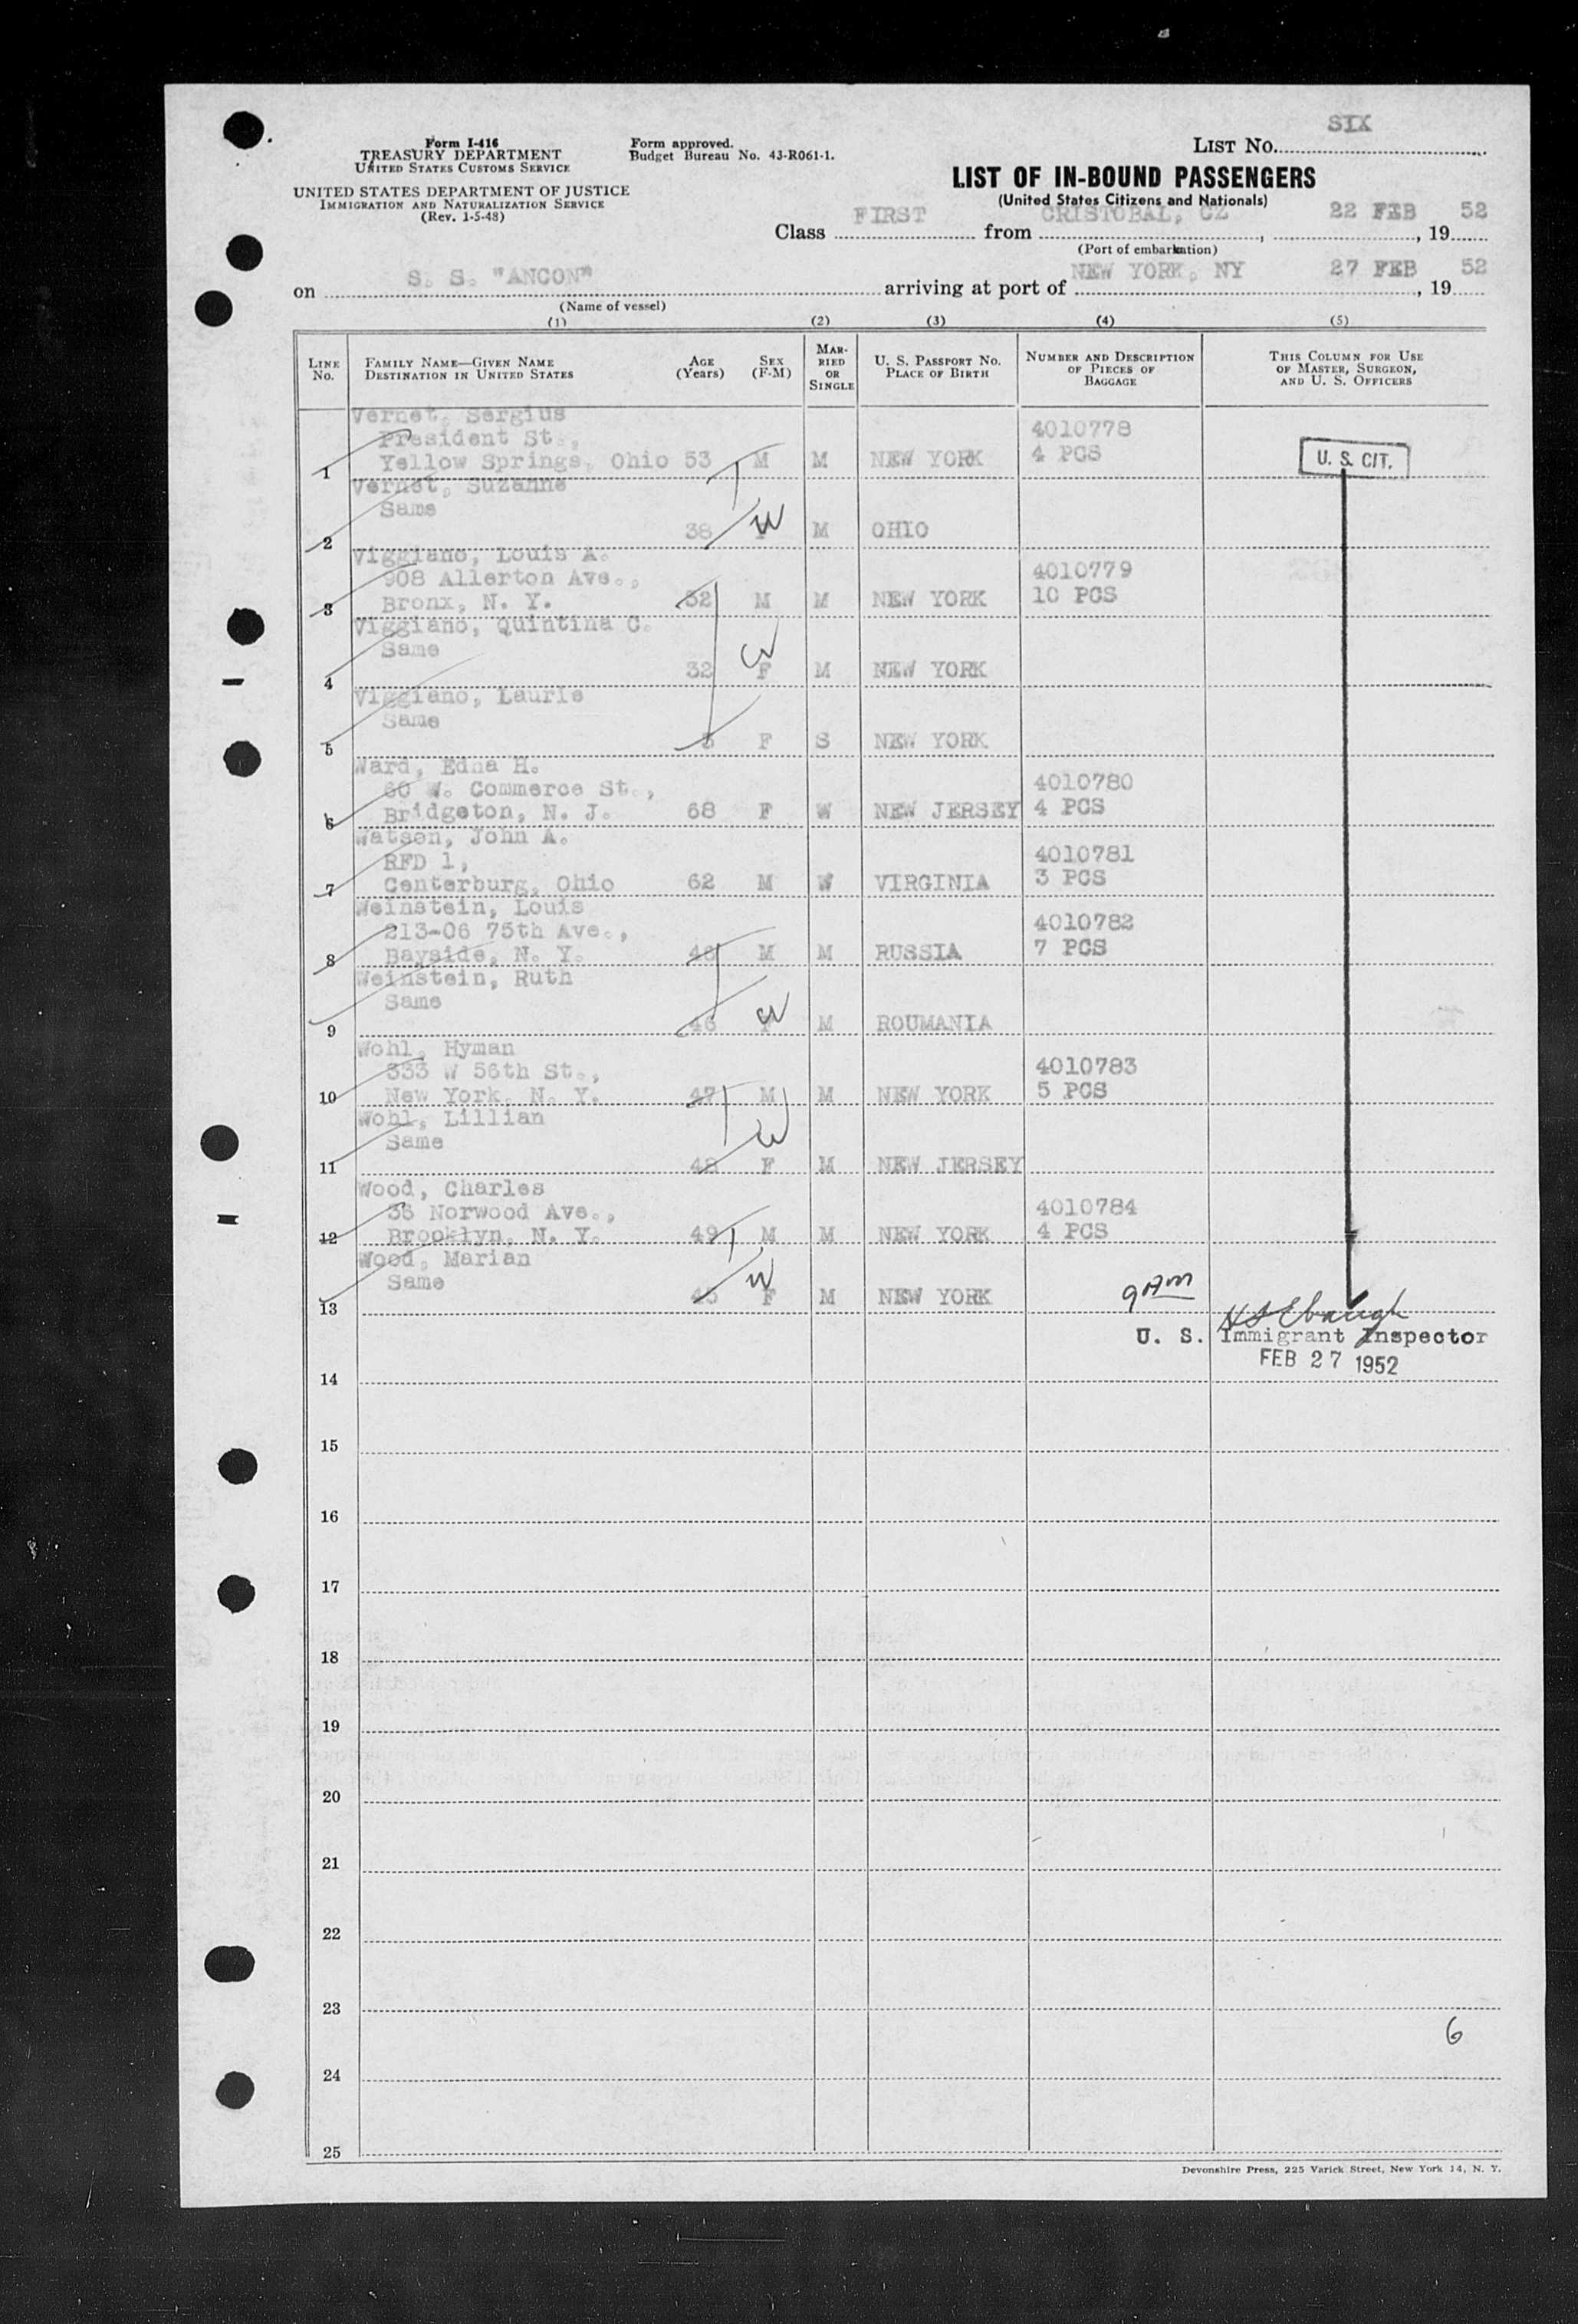 SIX
Form I-416
TREASURY DEPARTMENT
UNITED STATES CUSTOMS SERVICE
UNITED STATES DEPARTMENT OF JUSTICE
IMMIGRATION AND NATURALIZATION SERVICE
(Rev. 1-5-48)
Form approved.
Budget Bureau No. 43-R061-1.
LIST NO.
LIST OF IN-BOUND PASSENGERS
(United States Citizens and Nationals)
Class FIRST from CRISTOBAL, CZ, 22 FEB, 19 52
(Port of embarkation)
on S. S. "ANCON" arriving at port of NEW YORK, NY 27 FEB, 19 52
(Name of vessel)
(1) (2) (3) (4) (5)
LINE NO. FAMILY NAME—GIVEN NAME DESTINATION IN UNITED STATES AGE (Years) SEX (F-M) MARRIED OR SINGLE U. S. PASSPORT NO. PLACE OF BIRTH NUMBER AND DESCRIPTION OF PIECES OF BAGGAGE THIS COLUMN FOR USE OF MASTER, SURGEON, AND U. S. OFFICERS
Vernet, Sergius
President St., 4010778
1 Yellow Springs, Ohio 53 M M NEW YORK 4 PCS U. S. CIT.
Vernet, Suzanne
Same
2 38 W M OHIO
Viggiano, Louis A.
908 Allerton Ave., 4010779
3 Bronx, N. Y. 32 M M NEW YORK 10 PCS
Viggiano, Quintina C.
Same W
4 32 F M NEW YORK
Viggiano, Laurie
Same
5 F S NEW YORK
Ward, Edna H.
60 W. Commerce St., 4010780
6 Bridgeton, N. J. 68 F W NEW JERSEY 4 PCS
Watson, John A.
RFD 1, 4010781
7 Centerburg, Ohio 62 M W VIRGINIA 3 PCS
Weinstein, Louis
213-06 75th Ave., 4010782
8 Bayside, N. Y. M M RUSSIA 7 PCS
Weinstein, Ruth
Same W
9 46 F M ROUMANIA
Wohl, Hyman
333 W 56th St., 4010783
10 New York, N. Y. 47 M M NEW YORK 5 PCS
Wohl, Lillian
Same W
11 48 F M NEW JERSEY
Wood, Charles
36 Norwood Ave., 4010784
12 Brooklyn, N. Y. 49 M M NEW YORK 4 PCS
Wood, Marian
Same W
13 45 F M NEW YORK 9 AM
H S Ebaugh
U. S. Immigrant Inspector
FEB 27 1952
14
15
16
17
18
19
20
21
22
23
6
24
25
Devonshire Press, 225 Varick Street, New York 14, N. Y.